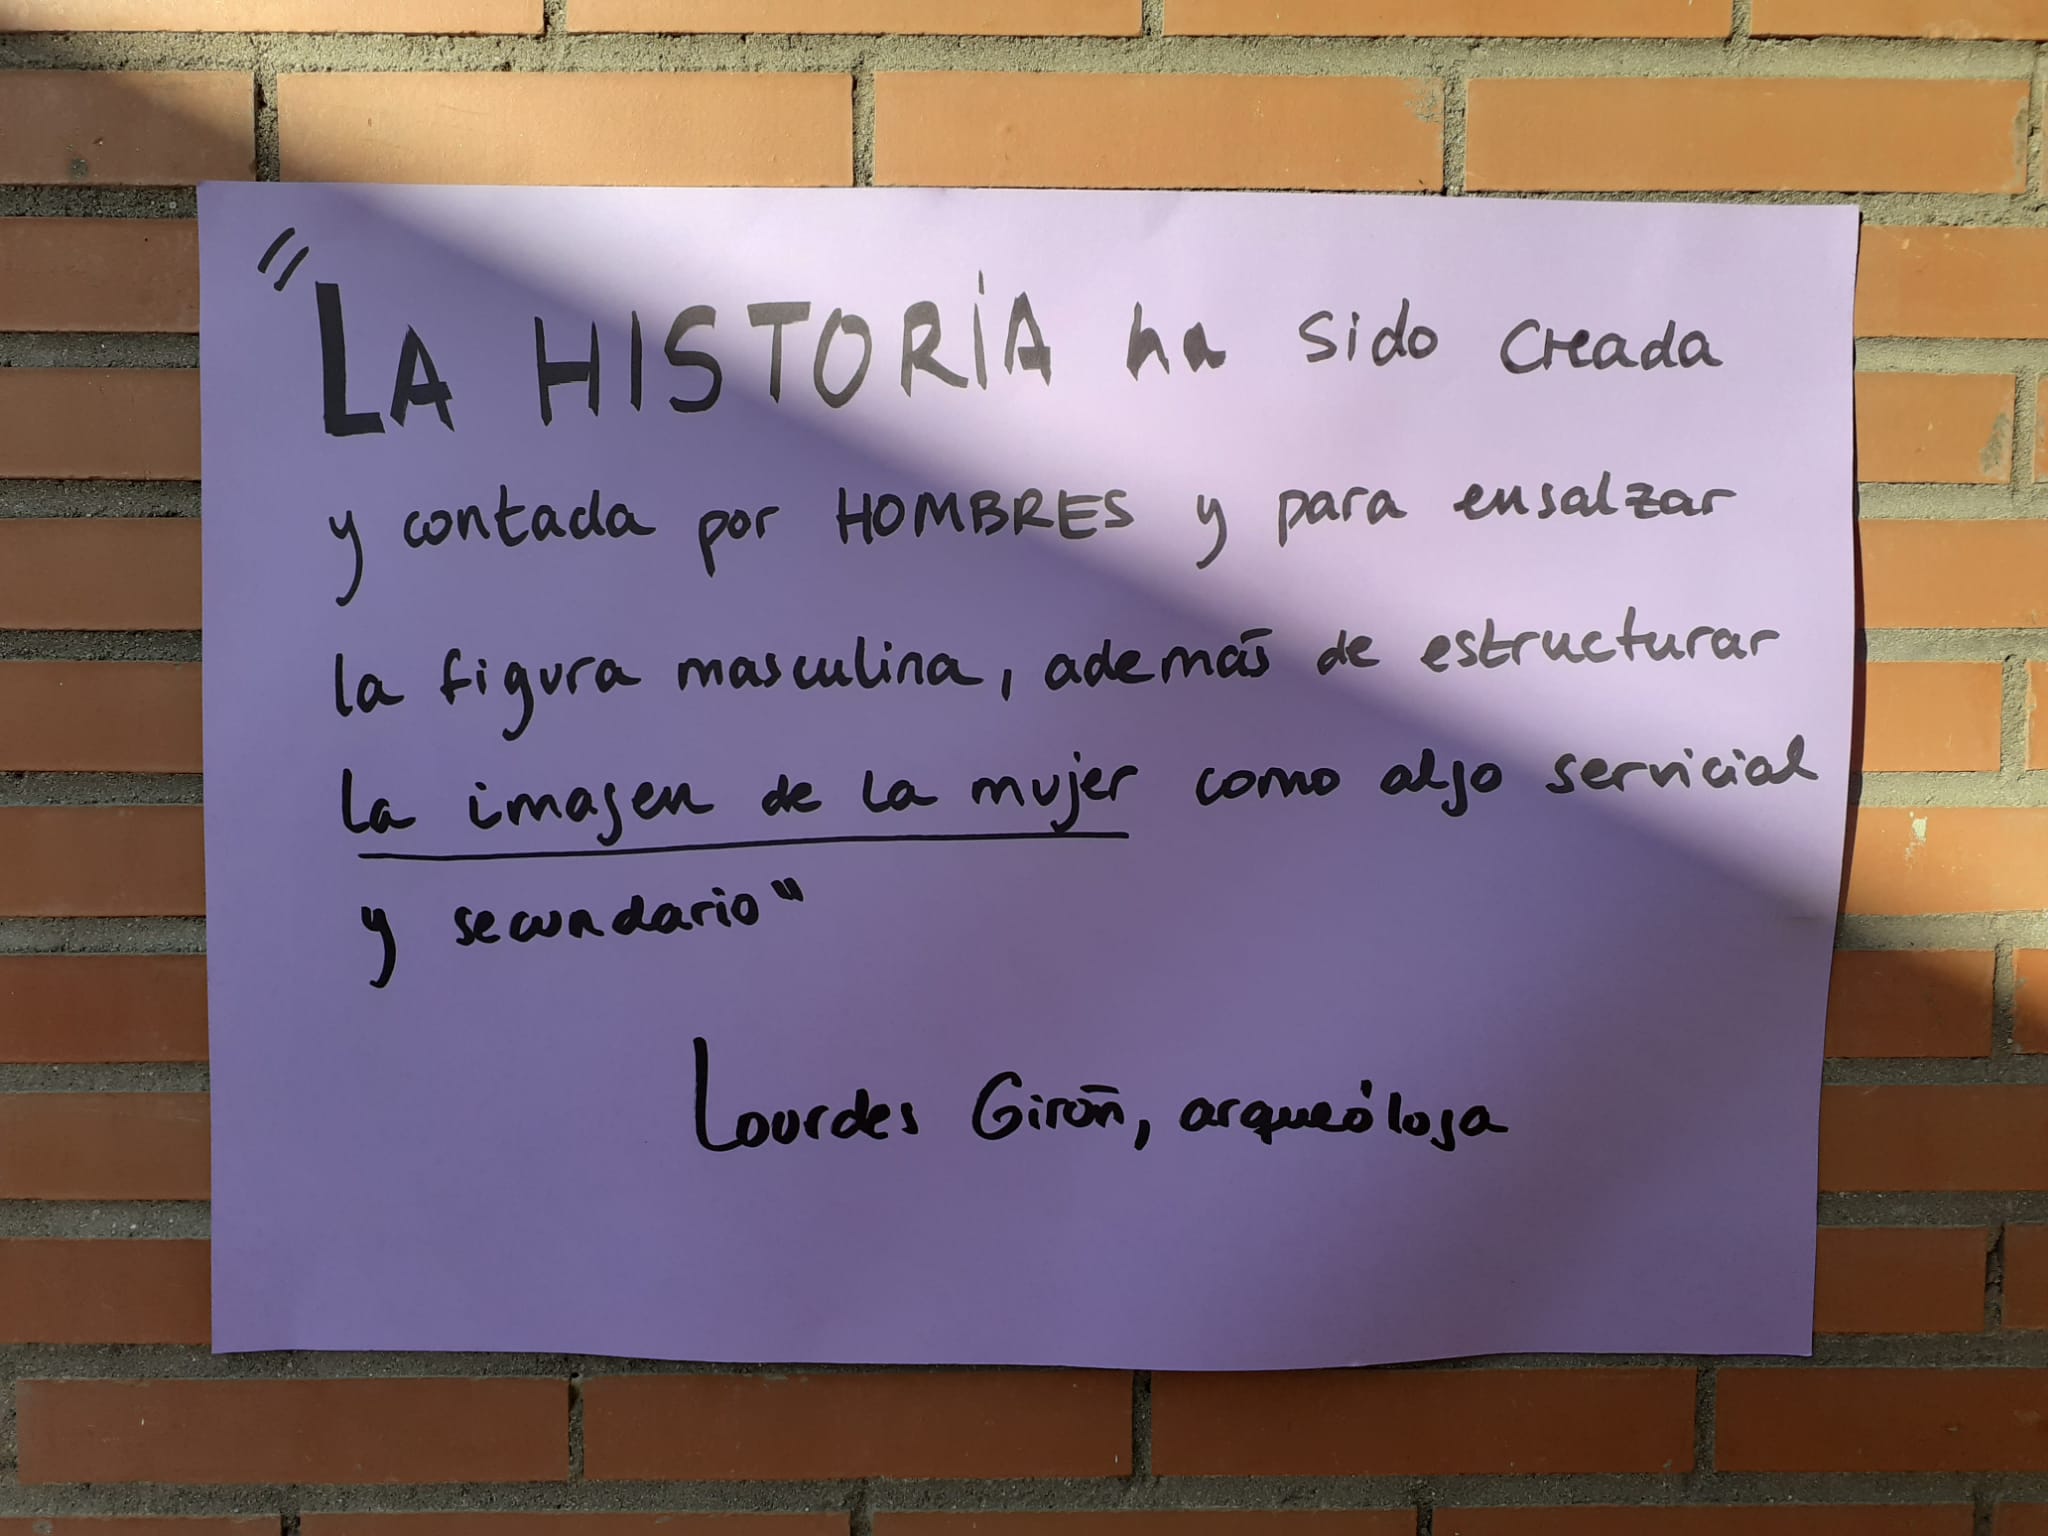 "LA HISTORIA ha sido creada
y contada por HOMBRES y para ensalzar
la figura masculina, además de estructurar
la imagen de la mujer como algo servicial
y secundario"
Lourdes Girón, arqueóloga